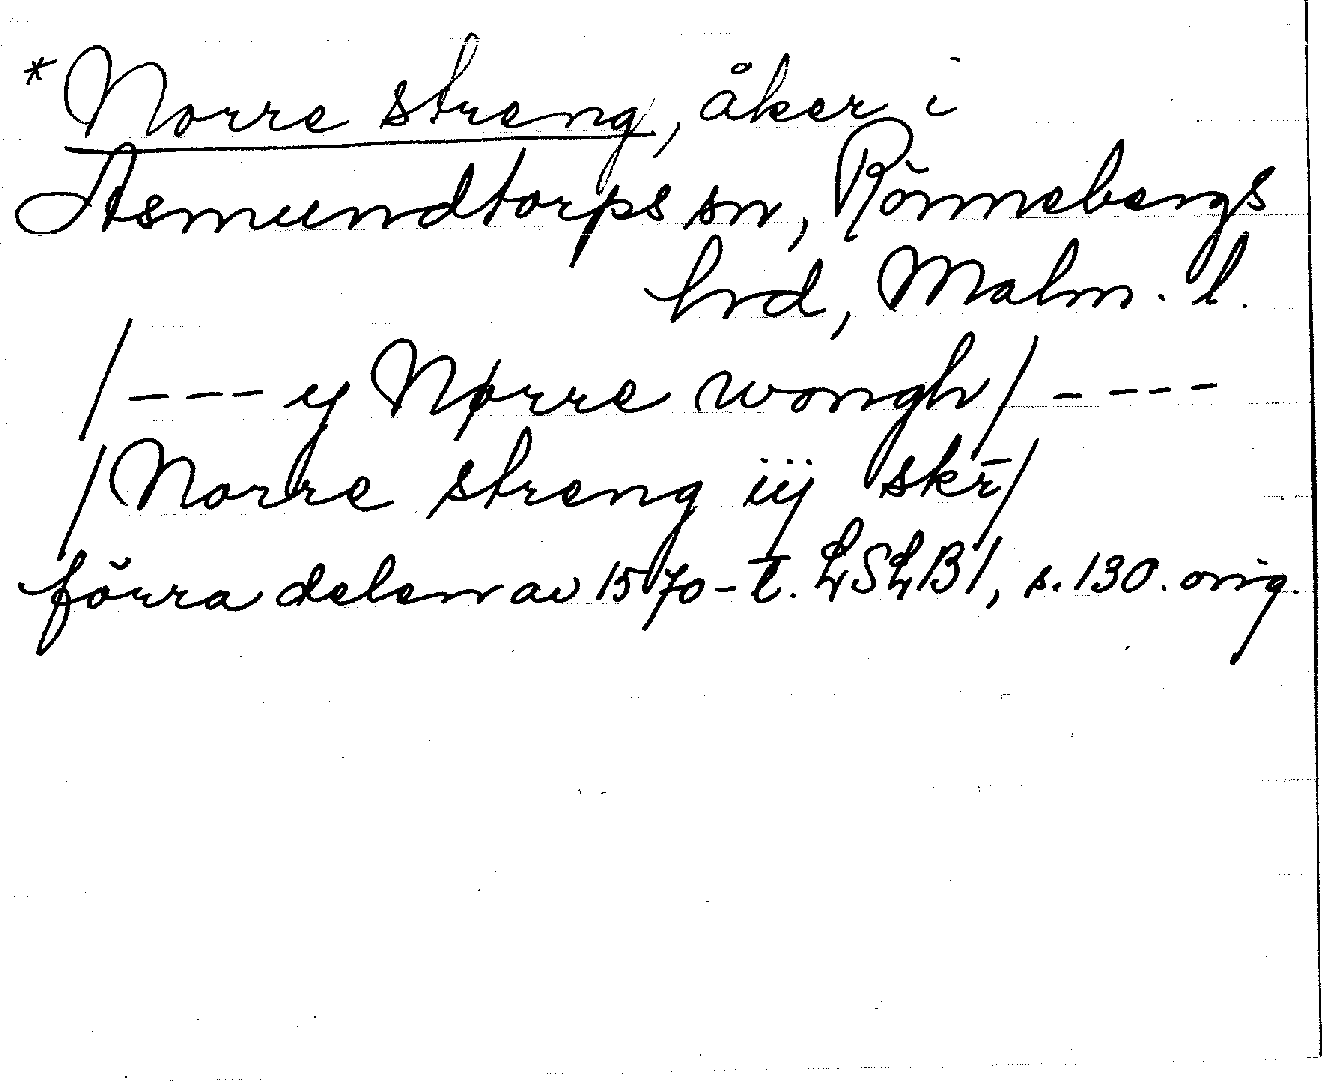 *Norre streng, åker i
Asmundtorps sn, Rönnebergs
hrd, Malm. l.
/---y Nørre wongh/----
/Norre streng iij skr̄/
förra delen av 1570-t. LSLB1, s. 130. orig.